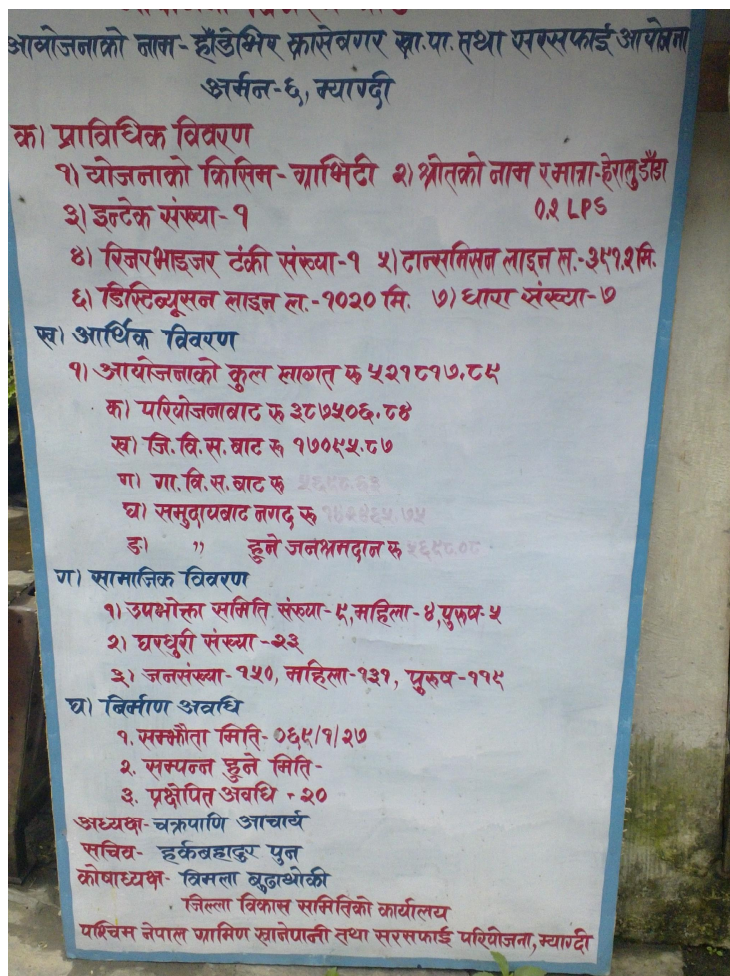 आयोजनाको नाम- हाँडेभिर क्रासेबगर खा.पा. तथा सरसफाई आयोजना
अर्मन-६, म्याग्दी
क। प्राविधिक विवरण
१। योजनाको किसिम- ग्राभिटी २। श्रोतको नाम र मात्रा-हेरालुडाँडा
३। इन्टेक संख्या-१ ०.२ LPS
४। रिजरभाइजर टंकी संख्या-१ ५। ट्रान्समिसन लाइन ल.-३९१.२ मि.
६। डिस्टिब्यूसन लाइन ल.-१०२० मि. ७। धारा संख्या-७
ख। आर्थिक विवरण
१। आयोजनाको कुल लागत रु ५२१८१७.८९
क। परियोजनाबाट रु ३८७५०६.८४
ख। जि.वि.स. बाट रु १७०९५.८७
ग। गा.वि.स. बाट रु
घ। समुदायबाट नगद रु
ङ। ,, हुने जनश्रमदान रु
ग। सामाजिक विवरण
१। उपभोक्ता समिति संख्या-९, महिला-४, पुरुष-५
२। घरधुरी संख्या-२३
३। जनसंख्या-१५०, महिला-१३१, पुरुष-११९
घ। निर्माण अवधि
१. सम्झौता मिति- ०६९/१/२७
२. सम्पन्न हुने मिति-
३. प्रक्षेपित अवधि - २०
अध्यक्ष- चक्रपाणि आचार्य
सचिव- हर्कबहादुर पुन
कोषाध्यक्ष- विमला बुढाथोकी
जिल्ला विकास समितिको कार्यालय
पश्चिम नेपाल ग्रामिण खानेपानी तथा सरसफाई परियोजना, म्याग्दी